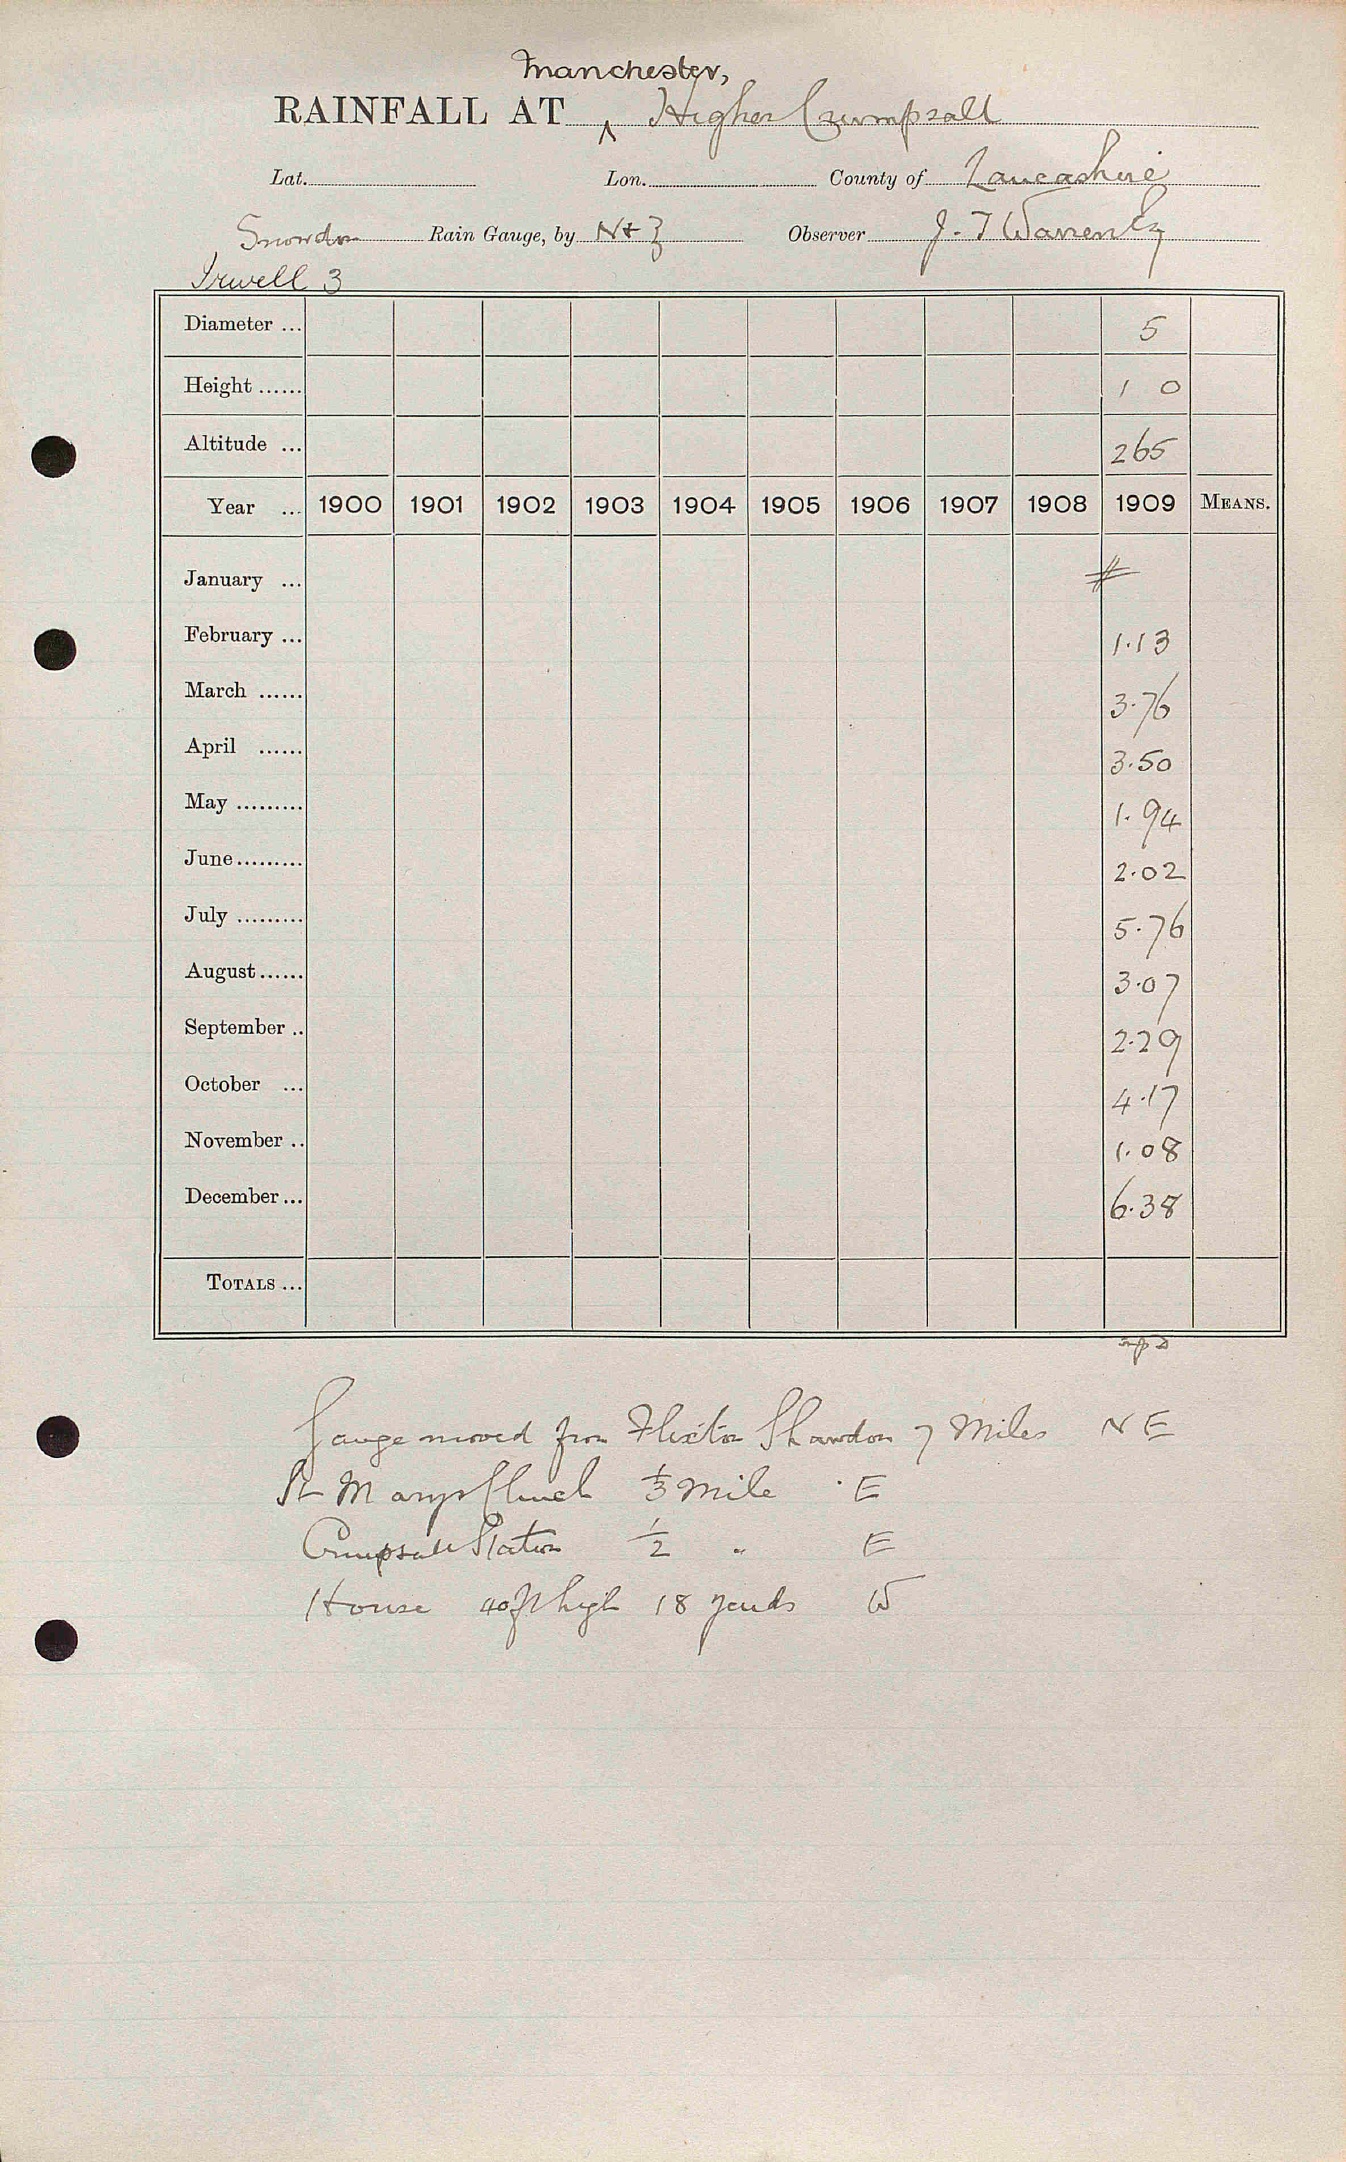 Manchester,
RAINFALL AT ^ Higher Crumpsall
Lat. Lon. County of Lancashire
Snowdon Rain Gauge, by N & Z Observer J. T Warren Esq
Irwell 3
Diameter ... 5
Height ...... 1 0
Altitude ... 265
Year ... 1900 1901 1902 1903 1904 1905 1906 1907 1908 1909 MEANS.
January ... #
February ... 1.13
March ...... 3.76
April ...... 3.50
May ......... 1.94
June ......... 2.02
July ......... 5.76
August ...... 3.07
September .. 2.29
October ... 4.17
November .. 1.08
December ... 6.38
TOTALS ...
Gauge moved from Flixton 7 Miles N E
St Marys Church 1/3 Mile E
Crumpsall Station 1/2 " E
House 40ft high 18 yards W